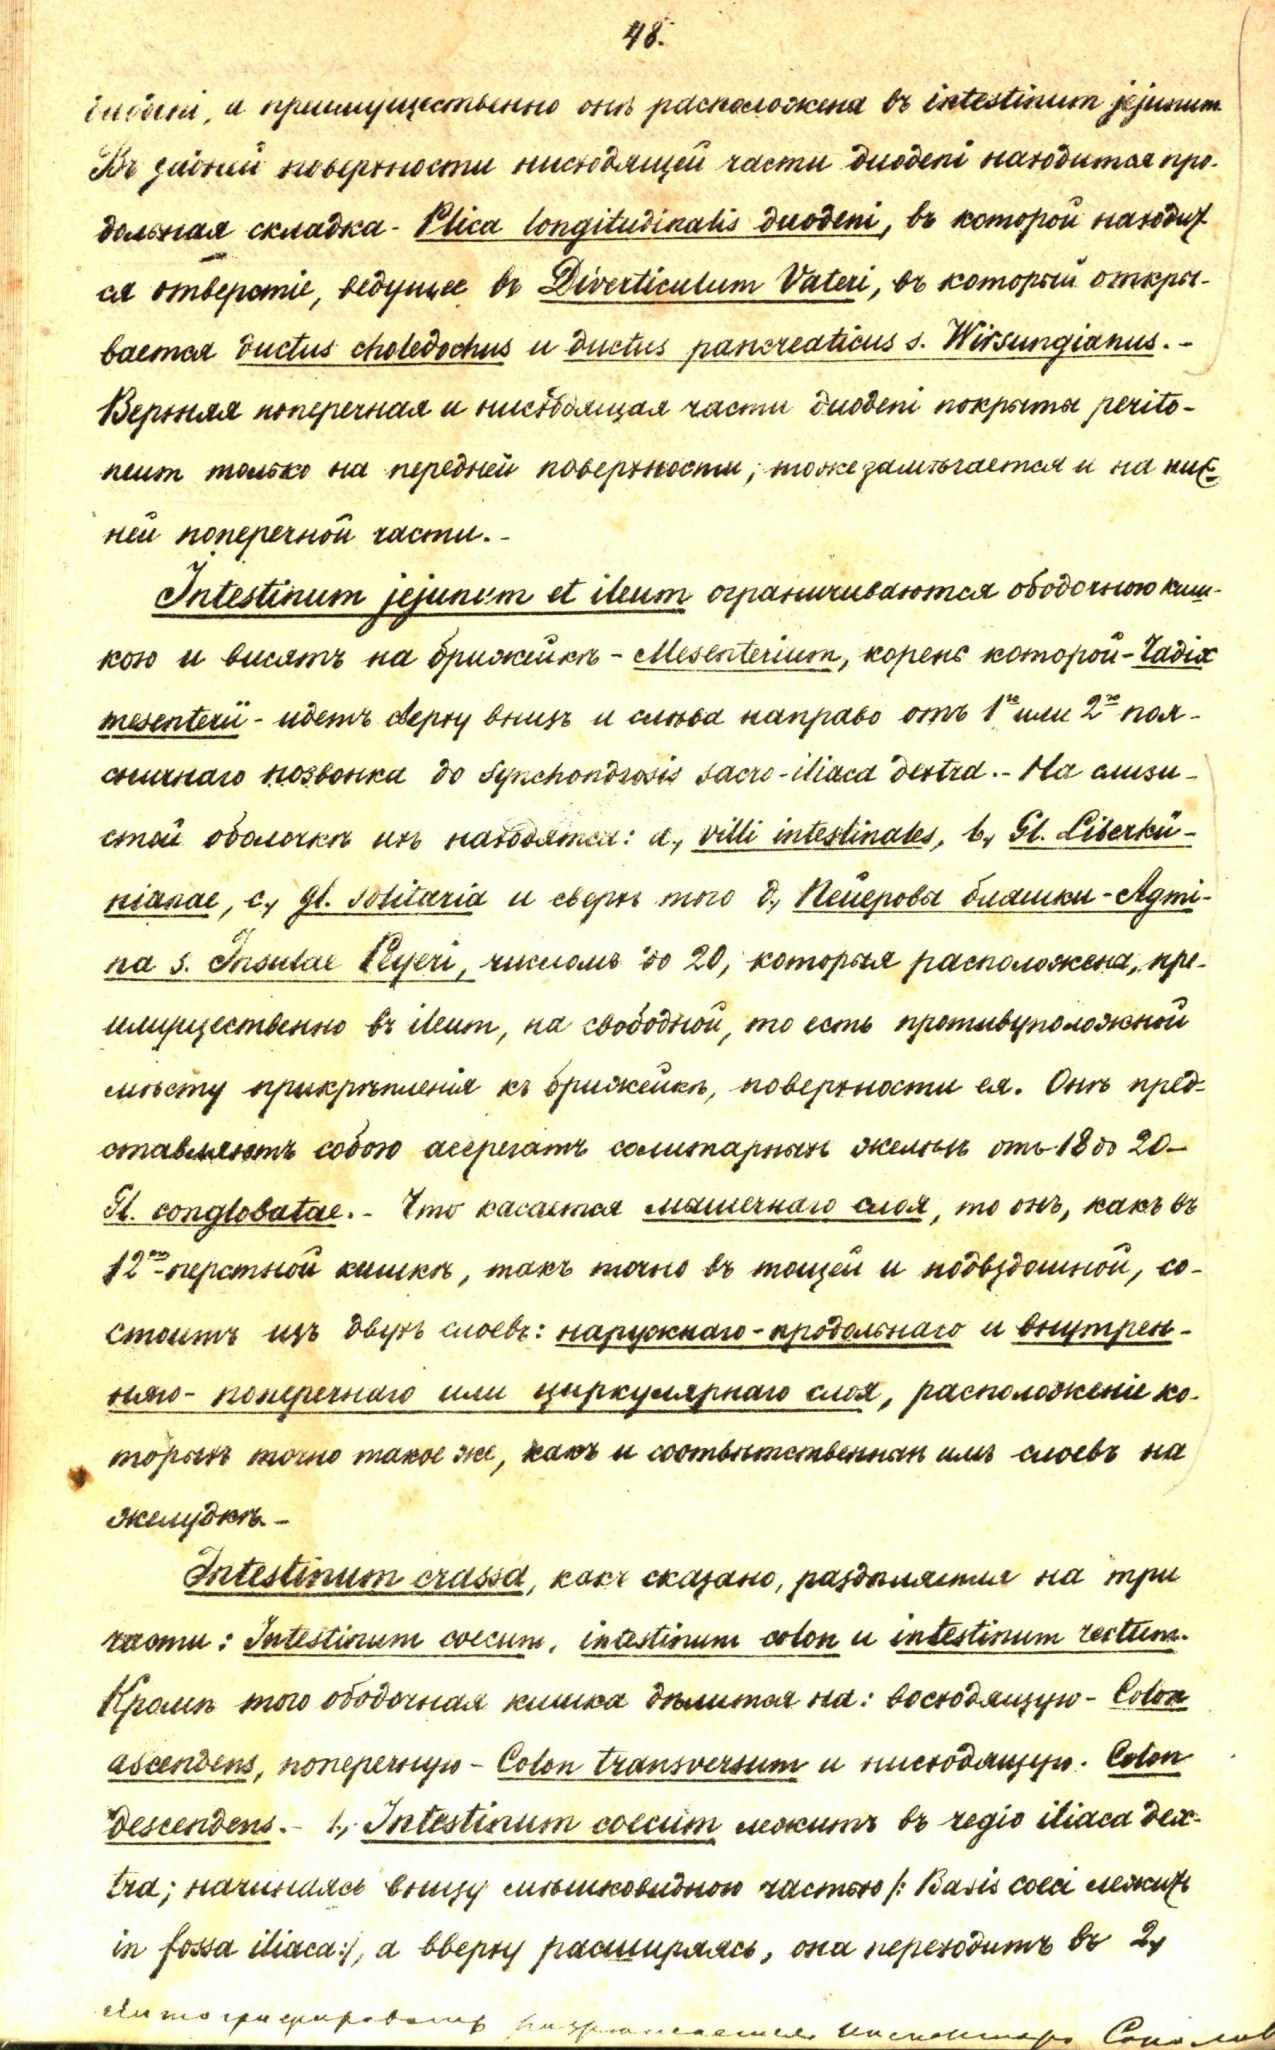 48.
duodeni, а преимущественно онѣ расположена въ intestinum jejunum
Въ задней поверхности нисходящей части duodeni находится про-
дольная складка - Plica longitudinalis duodeni, въ которой находит
ся отверстіе, ведущее въ Diverticulum Vateri, въ который откры-
вается ductus choledochus и ductus pancreaticus s. Wirsungianus. -
Верхняя поперечная и нисходящая части duodeni покрыты perito-
neum только на передней поверхности; тоже замѣчается и на ниж
ней поперечной части. -
Intestinum jejunum et ileum ограничиваются ободочною киш-
кою и висятъ на брижейкѣ - Mesenterium, корень которой - Radix
mesenterii - идетъ сверху внизъ и слѣва направо отъ 1го или 2го поя-
сничнаго позвонка до Synchondrosis sacro-iliaca dextra. - На слизи-
стой оболочкѣ ихъ находятся: a., villi intestinales, b., Gl. Liberkü-
nianae, c., gl. solitaria и сверхъ того d., Пейеровы бляшки - Agmi-
na s. Insulae Peyeri, числомъ до 20, которыя расположена, пре-
имущественно въ ileum, на свободной, то есть противуположной
мѣсту прикрѣпленія къ брижейкѣ, поверхности ея. Онѣ пред-
ставляютъ собою агрегатъ солитарныхъ желѣзъ отъ 18 до 20 -
Gl. conglobatae. - Что касается мышечнаго слоя, то онъ, какъ въ
12ти-перстной кишкѣ, такъ точно въ тощей и подвздошной, со-
стоитъ изъ двухъ слоевъ: наружнаго - продольнаго и внутрен-
няго - поперечнаго или циркулярнаго слоя, расположеніе ко-
торыхъ точно такое же, какъ и соотвѣтственныхъ имъ слоевъ на
желудкѣ. -
Intestinum crassa, какъ сказано, раздѣляется на три
части: Intestinum coecum, intestinum colon и intestinum rectum.
Кромѣ того ободочная кишка дѣлится на: восходящую - Colon
ascendens, поперечную - Colon transversum и нисходящую - Colon
descendens. - 1., Intestinum coecum лежитъ въ regio iliaca dex-
tra; начинаясь внизу мѣшковидною частью /: Basis coeci лежитъ
in fossa iliaca:/, а вверху расширяясь, она переходитъ въ 2.,
Литографировать разрѣшается. Инспекторъ